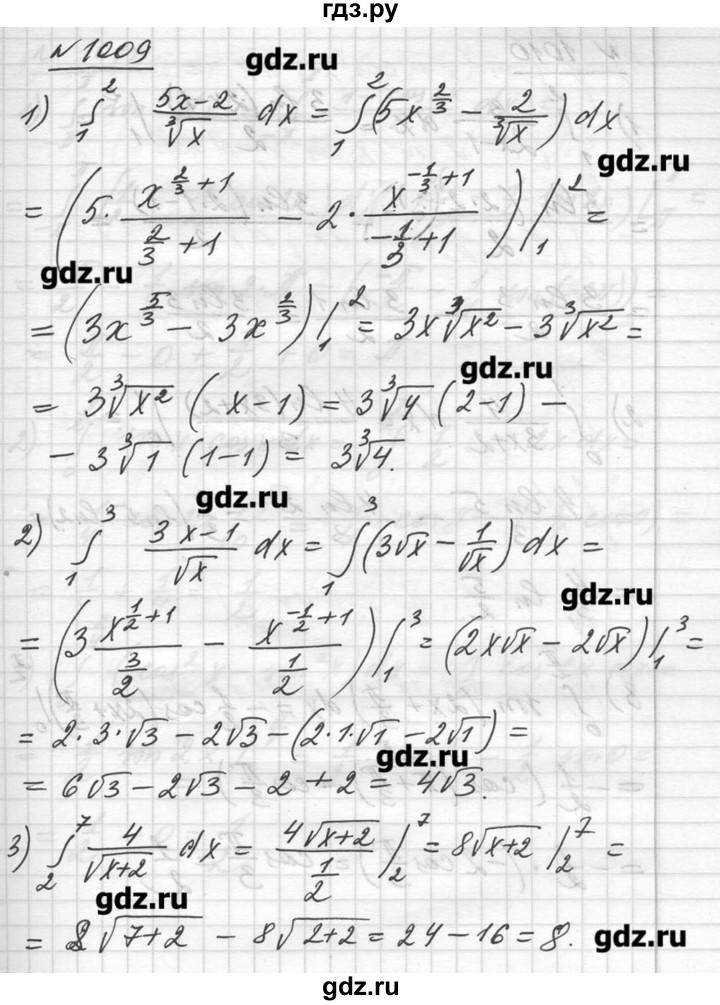 гдз.ру
№1009
gdz.ru
1) ∫₁² (5x-2)/∛x dx = ∫₁² (5x^(2/3) - 2/∛x) dx
gdz.ru
= (5 · x^(2/3+1)/(2/3+1) - 2 · x^(-1/3+1)/(-1/3+1)) |₁² =
gdz.ru
= (3x^(5/3) - 3x^(2/3)) |₁² = 3x∛x² - 3∛x² =
gdz.ru
= 3∛x² (x-1) = 3∛4 (2-1) -
- 3∛1 (1-1) = 3∛4.
gdz.ru
2) ∫₁³ (3x-1)/√x dx = ∫₁³ (3√x - 1/√x) dx =
gdz.ru
= (3 x^(1/2+1)/(3/2) - x^(-1/2+1)/(1/2)) |₁³ = (2x√x - 2√x) |₁³ =
= 2·3·√3 - 2√3 - (2·1·√1 - 2√1) =
gdz.ru
= 6√3 - 2√3 - 2 + 2 = 4√3.
3) ∫₂⁷ 4/√(x+2) dx = 4√(x+2)/(1/2) |₂⁷ = 8√(x+2) |₂⁷ =
gdz.ru
= 8√(7+2) - 8√(2+2) = 24 - 16 = 8.
gdz.ru
gdz.ru